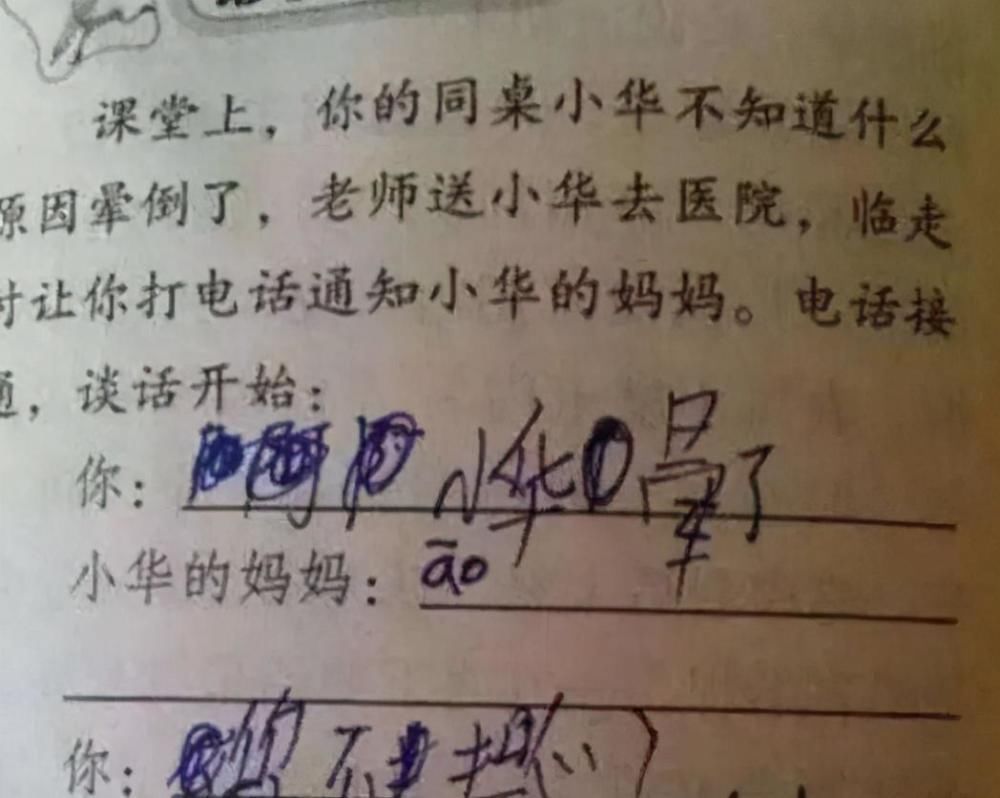 课堂上，你的同桌小华不知道什么
原因晕倒了，老师送小华去医院，临走
时让你打电话通知小华的妈妈。电话接
通，谈话开始：
你： 小华晕了
小华的妈妈： āo
你： 不担心